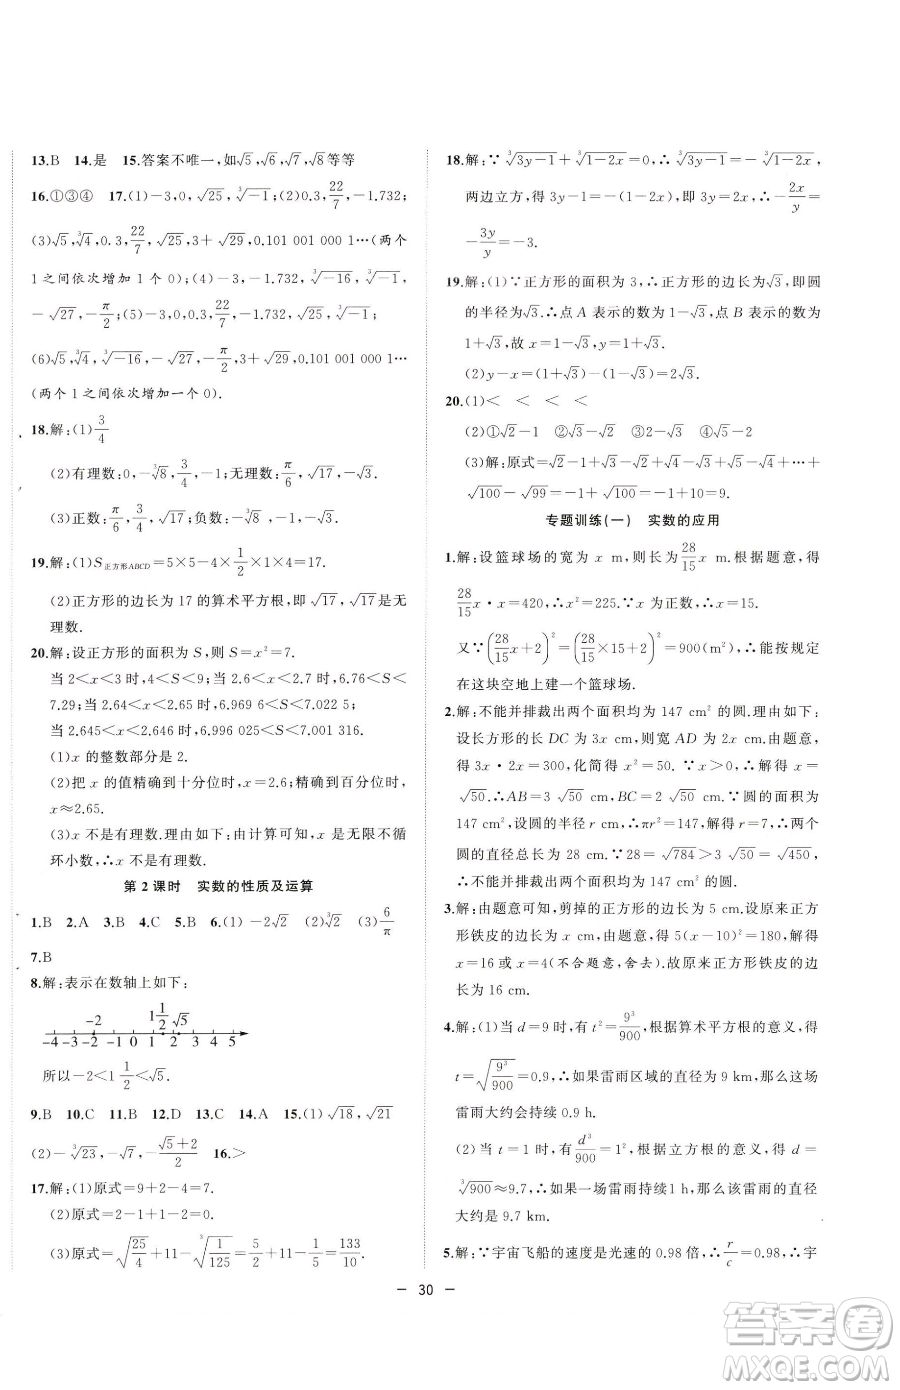 13.B 14.是 15.答案不唯一,如√5,√6,√7,√8等等
16.①③④ 17.(1)-3,0,√25,∛-1;(2)0.3,22/7,-1.732;
(3)√5,∛4,0.3,22/7,√25,3+√29,0.101 001 000 1…(两个
1之间依次增加1个0);(4)-3,-1.732,∛-16,∛-1,
-√27,-π/2;(5)-3,0.3,22/7,-1.732,√25,∛-1;
(6)√5,∛4,∛-16,-√27,-π/2,3+√29,0.101 001 000 1…
(两个1之间依次增加一个0).
18.解:(1)3/4
(2)有理数:0,-∛8,3/4,-1;无理数:π/6,√17,-√3.
(3)正数:π/6,3/4,√17;负数:-∛8,-1,-√3.
19.解:(1)S正方形ABCD=5×5-4×1/2×1×4=17.
(2)正方形的边长为17的算术平方根,即√17,√17是无
理数.
20.解:设正方形的面积为S,则S=x²=7.
当2<x<3时,4<S<9;当2.6<x<2.7时,6.76<S<
7.29;当2.64<x<2.65时,6.969 6<S<7.022 5;
当2.645<x<2.646时,6.996 025<S<7.001 316.
(1)x的整数部分是2.
(2)把x的值精确到十分位时,x=2.6;精确到百分位时,
x≈2.65.
(3)x不是有理数.理由如下:由计算可知,x是无限不循
环小数,∴x不是有理数.
第2课时 实数的性质及运算
1.B 2.A 3.B 4.C 5.B 6.(1)-2√2 (2)∛2 (3)6/π
7.B
8.解:表示在数轴上如下:
-2 1 1/2 √5
-4 -3 -2 -1 0 1 2 3 4 5
所以-2<1 1/2<√5.
9.B 10.C 11.B 12.D 13.C 14.A 15.(1)√18,√21
(2)-∛23,-√7,-(√5+2)/2 16.>
17.解:(1)原式=9+2-4=7.
(2)原式=2-1+1-2=0.
(3)原式=√(25/4)+11-∛(1/125)=5/2+11-1/5=133/10.
18.解:∵∛3y-1+∛1-2x=0,∴∛3y-1=-∛1-2x,
两边立方,得3y-1=-(1-2x),即3y=2x,∴-2x/y=
-3y/y=-3.
19.解:(1)∵正方形的面积为3,∴正方形的边长为√3,即圆
的半径为√3.∴点A表示的数为1-√3,点B表示的数为
1+√3,故x=1-√3,y=1+√3.
(2)y-x=(1+√3)-(1-√3)=2√3.
20.(1)< < < <
(2)①√2-1 ②√3-√2 ③2-√3 ④√5-2
(3)解:原式=√2-1+√3-√2+√4-√3+√5-√4+…+
√100-√99=-1+√100=-1+10=9.
专题训练(一) 实数的应用
1.解:设篮球场的宽为x m,则长为28/15x m.根据题意,得
28/15x·x=420,∴x²=225.∵x为正数,∴x=15.
又∵(28/15x+2)²=(28/15×15+2)²=900(m²),∴能按规定
在这块空地上建一个篮球场.
2.解:不能并排裁出两个面积均为147 cm²的圆.理由如下:
设长方形的长DC为3x cm,则宽AD为2x cm.由题意,
得3x·2x=300,化简得x²=50.∵x>0,∴x=
√50.∴AB=3√50 cm,BC=2√50 cm.∵圆的面积为
147 cm²,设圆的半径r cm,∴πr²=147,解得r=7,∴两个
圆的直径总长为28 cm.∵28=√784>3√50=√450,
∴不能并排裁出两个面积均为147 cm²的圆.
3.解:由题意可知,剪掉的正方形的边长为5 cm.设原来正方
形铁皮的边长为x cm,由题意,得5(x-10)²=180,∴
x=16或x=4(不合题意,舍去).故原来正方形铁皮的边
长为16 cm.
4.解:(1)当d=9时,有t²=9³/900,根据算术平方根的意义,得
t=√(9³/900)=0.9,∴如果雷雨区域的直径为9 km,那么这场
雷雨大约会持续0.9 h.
(2)当t=1时,有d³/900=1²,根据立方根的意义,得d=
∛900≈9.7,∴如果一场雷雨持续1 h,那么该雷雨的直径
大约是9.7 km.
5.解:∵宇宙飞船的速度是光速的0.98倍,∴r/c=0.98,∴宇
- 30 -
答案圈
MXQE.COM